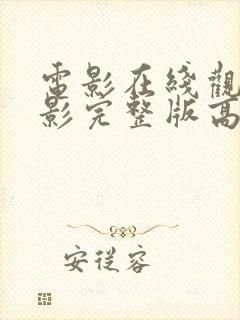 電影在綫觀
影完整版高
安從容